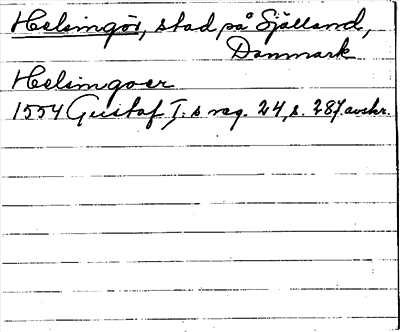 Helsingör, stad på Själland,
Danmark
Helsingoer
1554 Gustaf I:s reg. 24, s. 287. avskr.